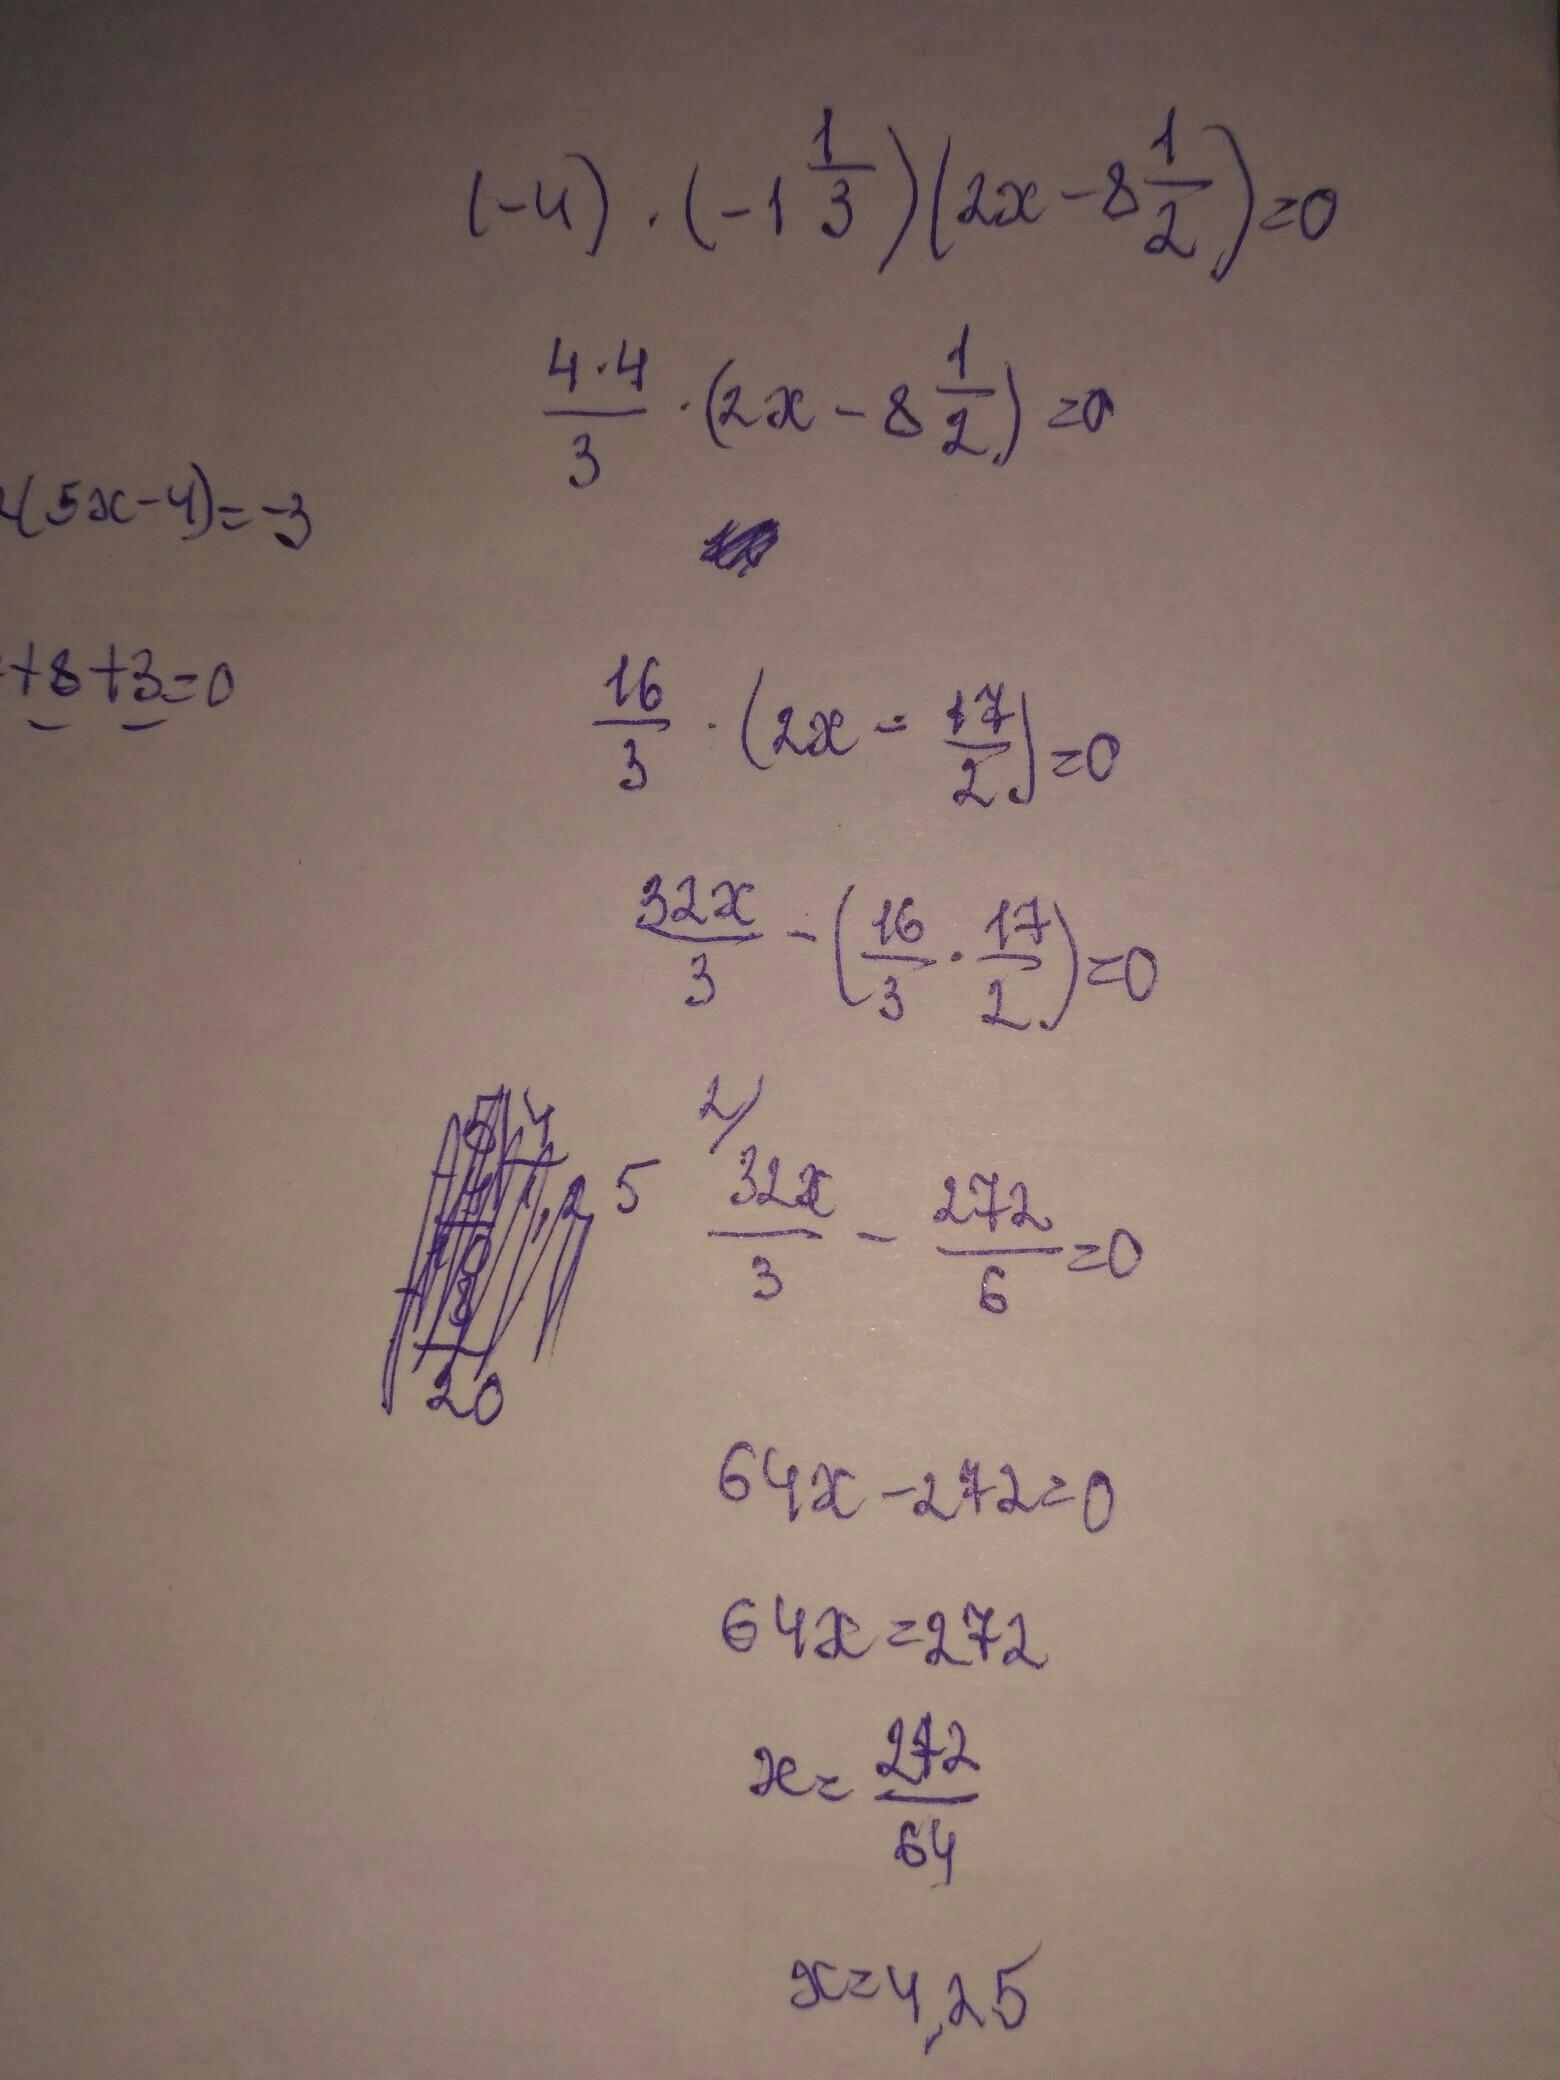 (-4) · (-1 1/3)(2x - 8 1/2) = 0
4·4/3 · (2x - 8 1/2) = 0
(5x-4) = -3
16/3 · (2x - 17/2) = 0
+8+3=0
32x/3 - (16/3 · 17/2) = 0
2/
5
32x/3 - 272/6 = 0
20
64x - 272 = 0
64x = 272
x = 272/64
x = 4,25